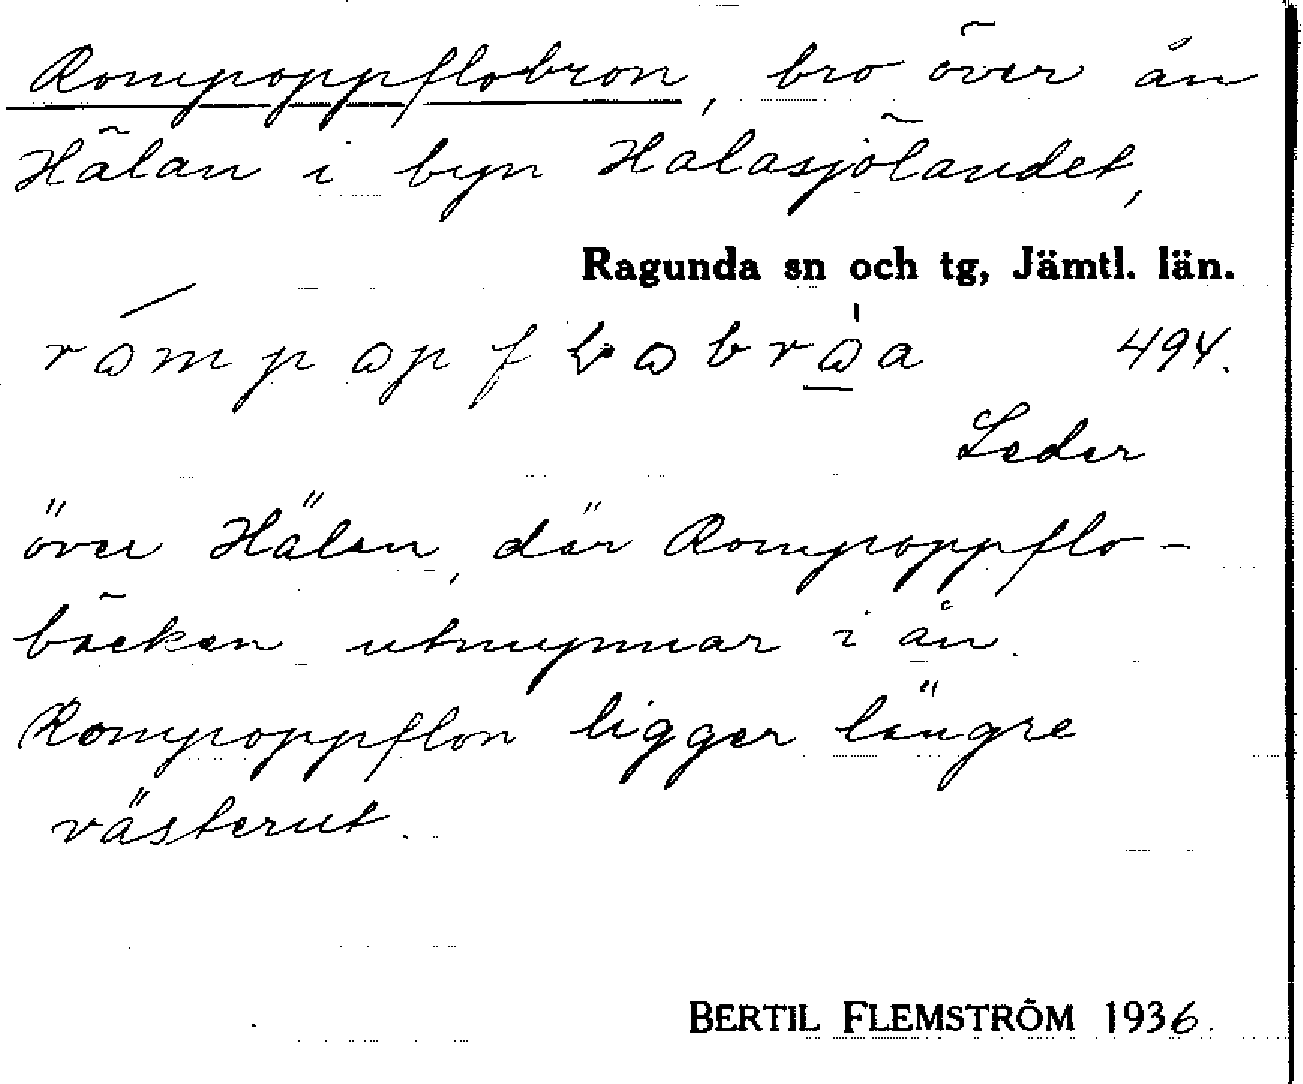 Rompoppflobron, bro över ån
Hälan i byn Halasjölandet,
Ragunda sn och tg, Jämtl. län.
494.
Leder
över Hälan, där Rompoppflo-
bäcken utmynnar i ån.
Rompoppflon ligger längre
västerut.
BERTIL FLEMSTRÖM 1936.